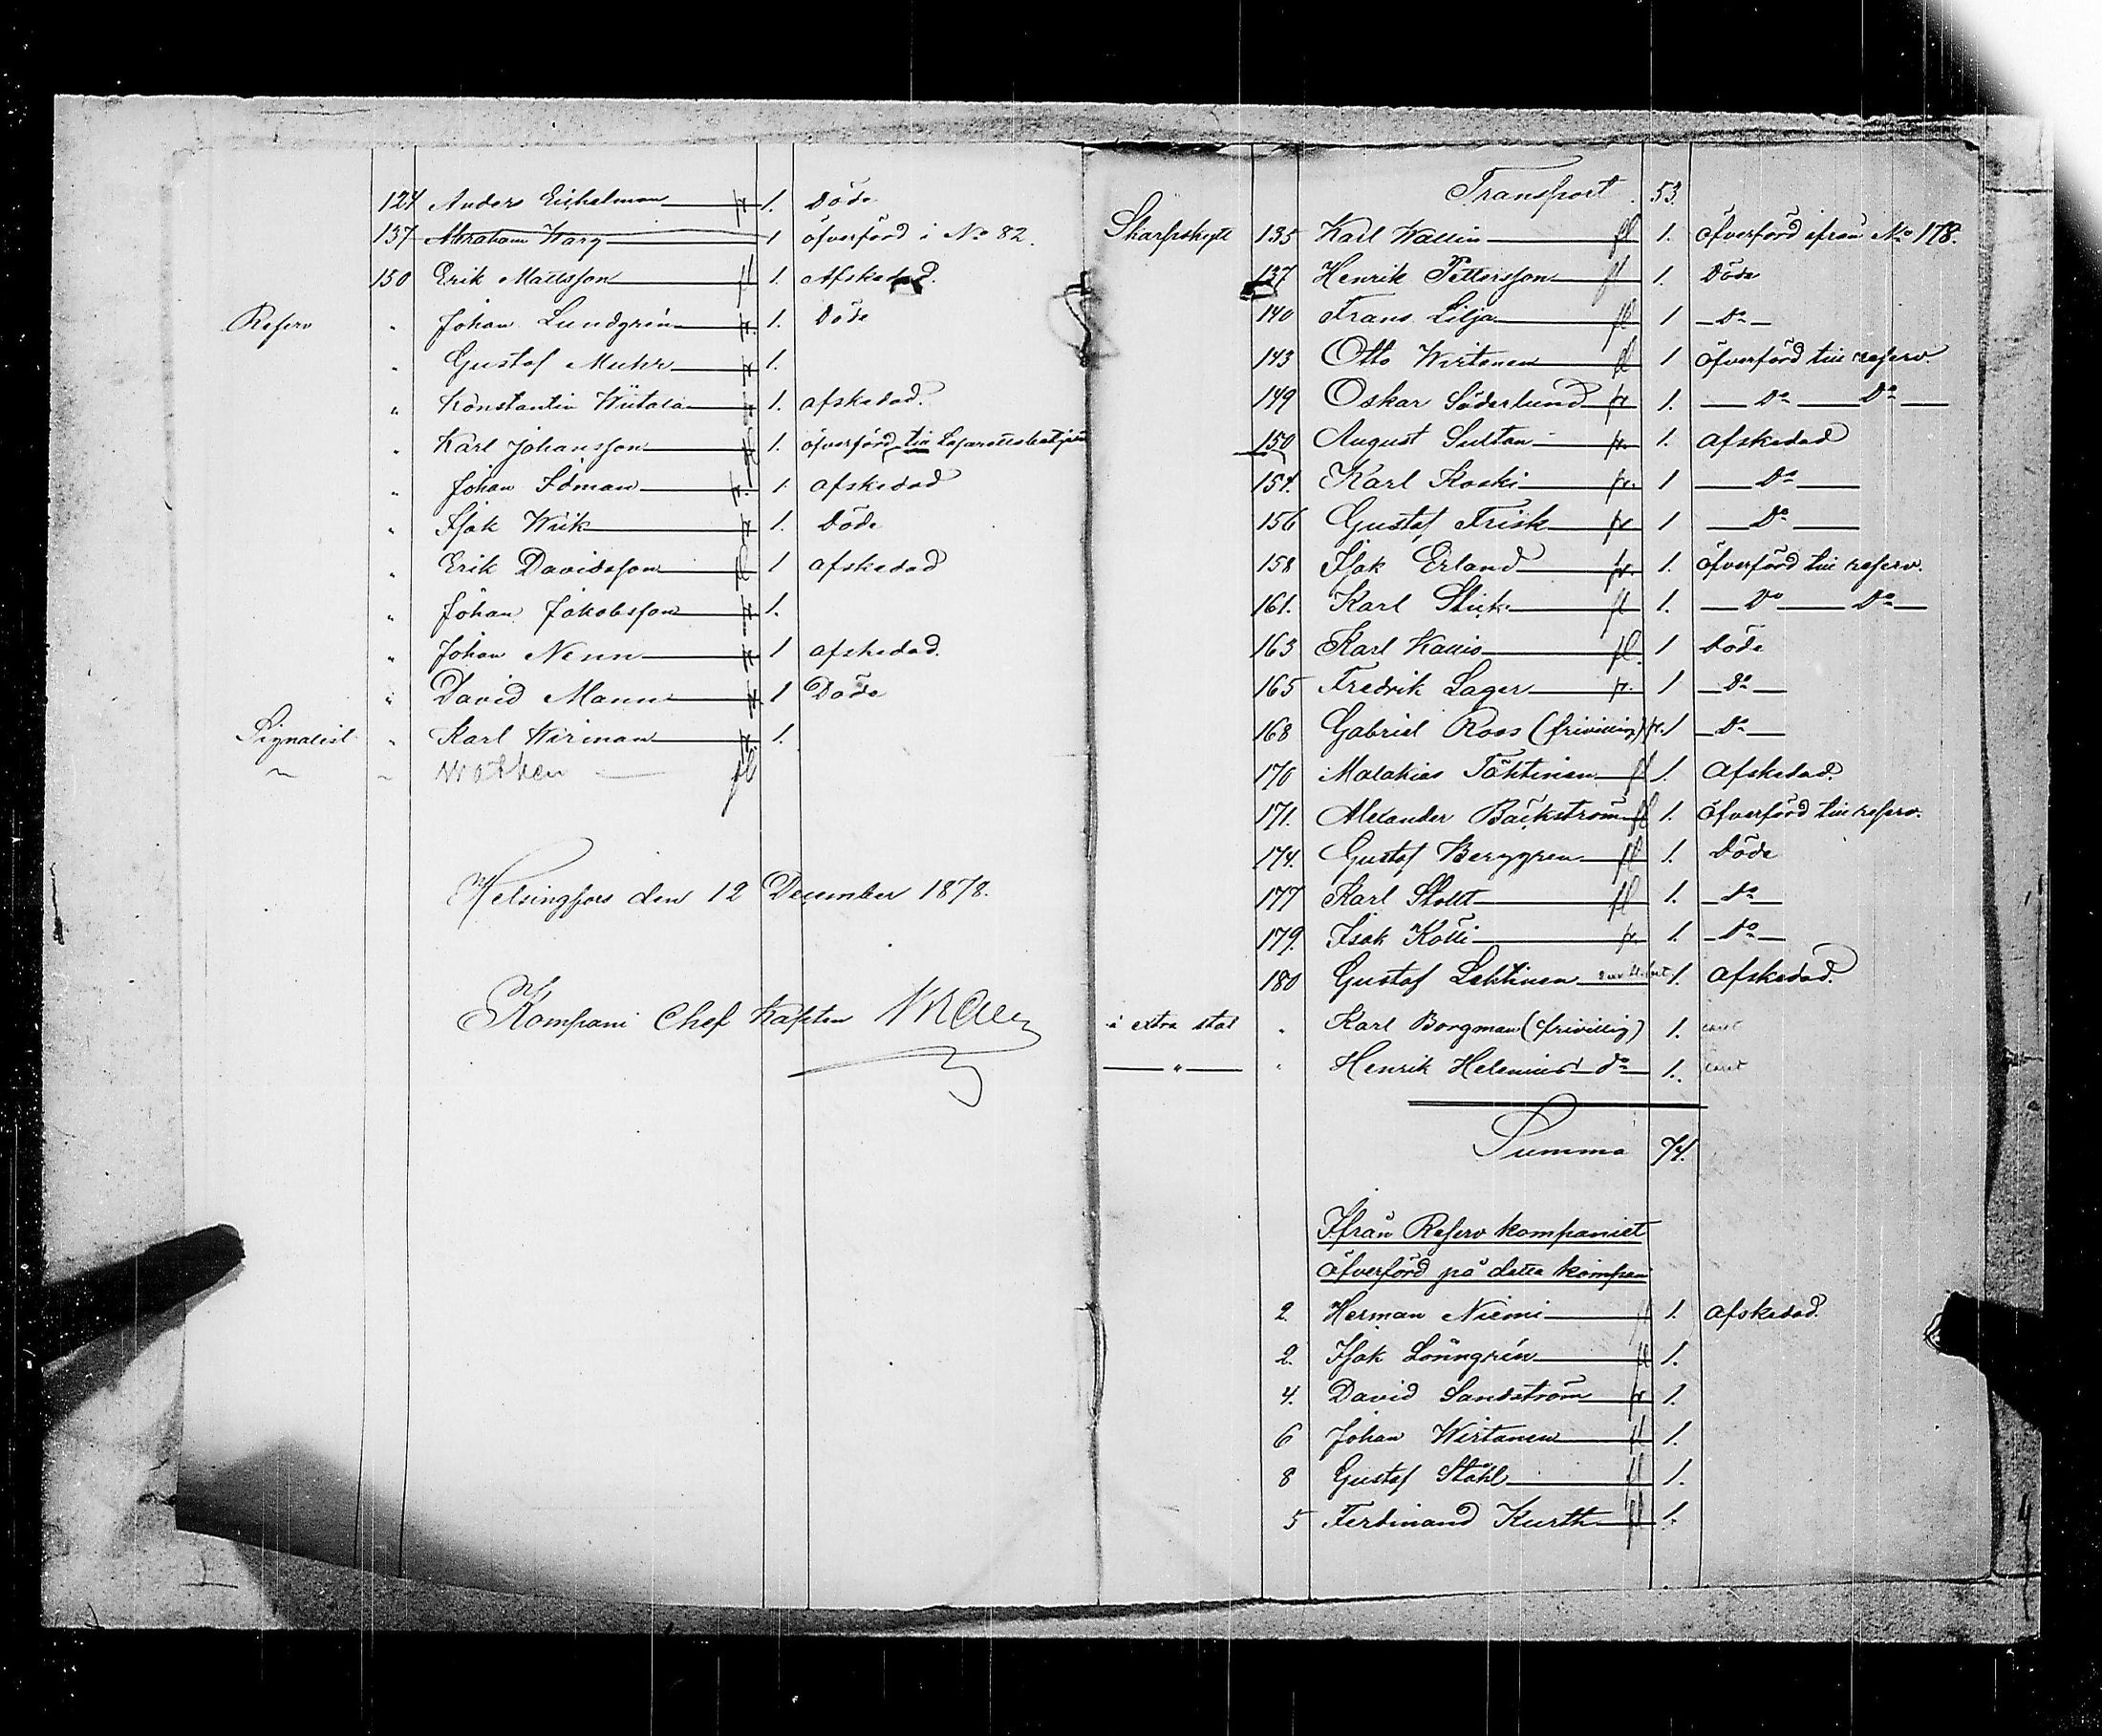 124 Anders Eichelman fr 1. Döde
137 Abraham Warg 1 öfverförd i No 82.
150 Erik Mattsson fl 1. Afskedad.
Reserv " Johan Lundgrén fr. 1. Döde
" Gustaf Muhr fr 1.
" Konstantin Wiitala fr 1. afskedad.
" Karl Johansson fl 1. öfverförd till
" Johan Idman fr. 1. afskedad
" Isak Wiik fr 1. Döde
" Erik Davidsson fl 1 afskedad
" Johan Jakobsson fr 1.
" Johan Nenn fr 1 afskedad.
" David Mann fr 1 Döde
Signalist " Karl Wirman fr. 1.
" " fl
Helsingfors den 12 December 1878.
Kompani Chef Kapten
Transport 53.
Skarpskytt 135 Karl Wallin fl 1. öfverförd ifrån No 178.
137 Henrik Pettersson fl 1. Döde
140 Frans Lilja fl 1 — Do —
143 Otto Wirtanen fl 1 öfverförd till reserv.
149 Oskar Söderlund fr 1. — Do — Do —
150 August Sultan fr. 1. afskedad
154. Karl Koski fr. 1 — Do —
156 Gustaf Frisk fr 1 — Do —
158 Isak Erland fr. 1. öfverförd till reserv.
161. Karl Stick fl 1. — Do — Do —
163 Karl Kallio fl. 1 Döde
165 Fredrik Lager fr. 1 — Do —
168 Gabriel Roos (frivillig) fr. 1 — Do —
170 Malakias Tähtinen fl 1. Afskedad.
171. Alexander Bäckström fl 1. öfverförd till reserv.
174. Gustaf Berggren fl 1. Döde
177 Karl Stollt fl 1. — Do —
179. Isak Kölli fr. 1. — Do —
180 Gustaf Lehtinen 1. Afskedad.
i extra stat " Karl Borgman (frivillig) 1.
— " — " Henrik Helenius do 1.
Summa 74.
Ifrån Reserv kompaniet
öfverförd på detta kompani
2. Herman Niemi fl 1. afskedad.
2. Isak Lönngrén fl 1.
4. David Sandström fr 1.
6 Johan Wirtanen fl 1.
8 Gustaf Ståhl fl 1.
5 Ferdinand Kurth fl 1.